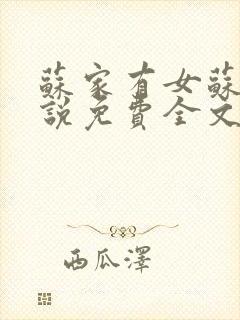 蘇家有女蘇
說免費全文
西瓜澤